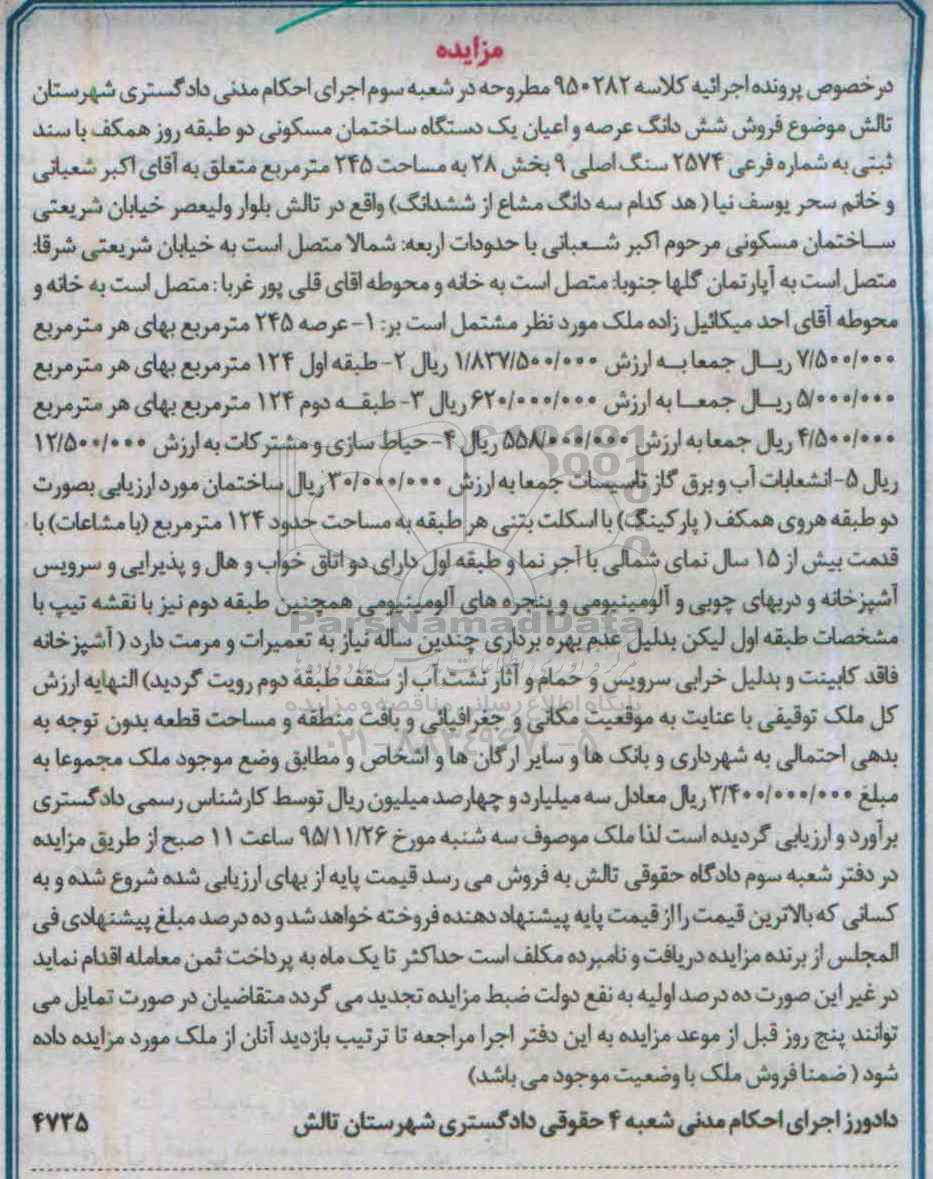 مزایده
درخصوص پرونده اجرائیه کلاسه ۹۵۰۲۸۲ مطروحه در شعبه سوم اجرای احکام مدنی دادگستری شهرستان
تالش موضوع فروش شش دانگ عرصه و اعیان یک دستگاه ساختمان مسکونی دو طبقه روز همکف با سند
ثبتی به شماره فرعی ۲۵۷۴ سنگ اصلی ۹ بخش ۲۸ به مساحت ۲۴۵ مترمربع متعلق به آقای اکبر شعبانی
و خانم سحر یوسف نیا ( هد کدام سه دانگ مشاع از ششدانگ) واقع در تالش بلوار ولیعصر خیابان شریعتی
ساختمان مسکونی مرحوم اکبر شعبانی با حدودات اربعه: شمالا متصل است به خیابان شریعتی شرقا:
متصل است به آپارتمان گلها جنوبا: متصل است به خانه و محوطه اقای قلی پور غربا : متصل است به خانه و
محوطه آقای احد میکائیل زاده ملک مورد نظر مشتمل است بر: ۱- عرصه ۲۴۵ مترمربع بهای هر مترمربع
۷/۵۰۰/۰۰۰ ریال جمعا به ارزش ۱/۸۳۷/۵۰۰/۰۰۰ ریال ۲- طبقه اول ۱۲۴ مترمربع بهای هر مترمربع
۵/۰۰۰/۰۰۰ ریال جمعا به ارزش ۶۲۰/۰۰۰/۰۰۰ ریال ۳- طبقه دوم ۱۲۴ مترمربع بهای هر مترمربع
۴/۵۰۰/۰۰۰ ریال جمعا به ارزش ۵۵۸/۰۰۰/۰۰۰ ریال ۴- حیاط سازی و مشترکات به ارزش ۱۲/۵۰۰/۰۰۰
ریال ۵- انشعابات آب و برق گاز تاسیسات جمعا به ارزش ۳۰/۰۰۰/۰۰۰ ریال ساختمان مورد ارزیابی بصورت
دو طبقه هروی همکف ( پارکینگ) با اسکلت بتنی هر طبقه به مساحت حدود ۱۲۴ مترمربع (با مشاعات) با
قدمت بیش از ۱۵ سال نمای شمالی با آجر نما و طبقه اول دارای دو اتاق خواب و هال و پذیرایی و سرویس
آشپزخانه و دربهای چوبی و آلومینیومی و پنجره های آلومینیومی همچنین طبقه دوم نیز با نقشه تیپ با
ParsNamadData
مشخصات طبقه اول لیکن بدلیل عدم بهره برداری چندین ساله نیاز به تعمیرات و مرمت دارد ( آشپزخانه
فاقد کابینت و بدلیل خرابی سرویس و حمام و آثار نشت آب از سقف طبقه دوم رویت گردید) النهایه ارزش
پایگاه اطلاع رسانی مناقصه و مزایده
کل ملک توقیفی با عنایت به موقعیت مکانی و جغرافیائی و بافت منطقه و مساحت قطعه بدون توجه به
۰۲۱-۸۸۳۴۹۶۷۰-۵
بدهی احتمالی به شهرداری و بانک ها و سایر ارگان ها و اشخاص و مطابق وضع موجود ملک مجموعا به
مبلغ ۳/۴۰۰/۰۰۰/۰۰۰ ریال معادل سه میلیارد و چهارصد میلیون ریال توسط کارشناس رسمی دادگستری
برآورد و ارزیابی گردیده است لذا ملک موصوف سه شنبه مورخ ۹۵/۱۱/۲۶ ساعت ۱۱ صبح از طریق مزایده
در دفتر شعبه سوم دادگاه حقوقی تالش به فروش می رسد قیمت پایه از بهای ارزیابی شده شروع شده و به
کسانی که بالاترین قیمت را از قیمت پایه پیشنهاد دهنده فروخته خواهد شد و ده درصد مبلغ پیشنهادی فی
المجلس از برنده مزایده دریافت و نامبرده مکلف است حداکثر تا یک ماه به پرداخت ثمن معامله اقدام نماید
در غیر این صورت ده درصد اولیه به نفع دولت ضبط مزایده تجدید می گردد متقاضیان در صورت تمایل می
توانند پنج روز قبل از موعد مزایده به این دفتر اجرا مراجعه تا ترتیب بازدید آنان از ملک مورد مزایده داده
شود ( ضمنا فروش ملک با وضعیت موجود می باشد)
دادورز اجرای احکام مدنی شعبه ۴ حقوقی دادگستری شهرستان تالش ۴۷۳۵